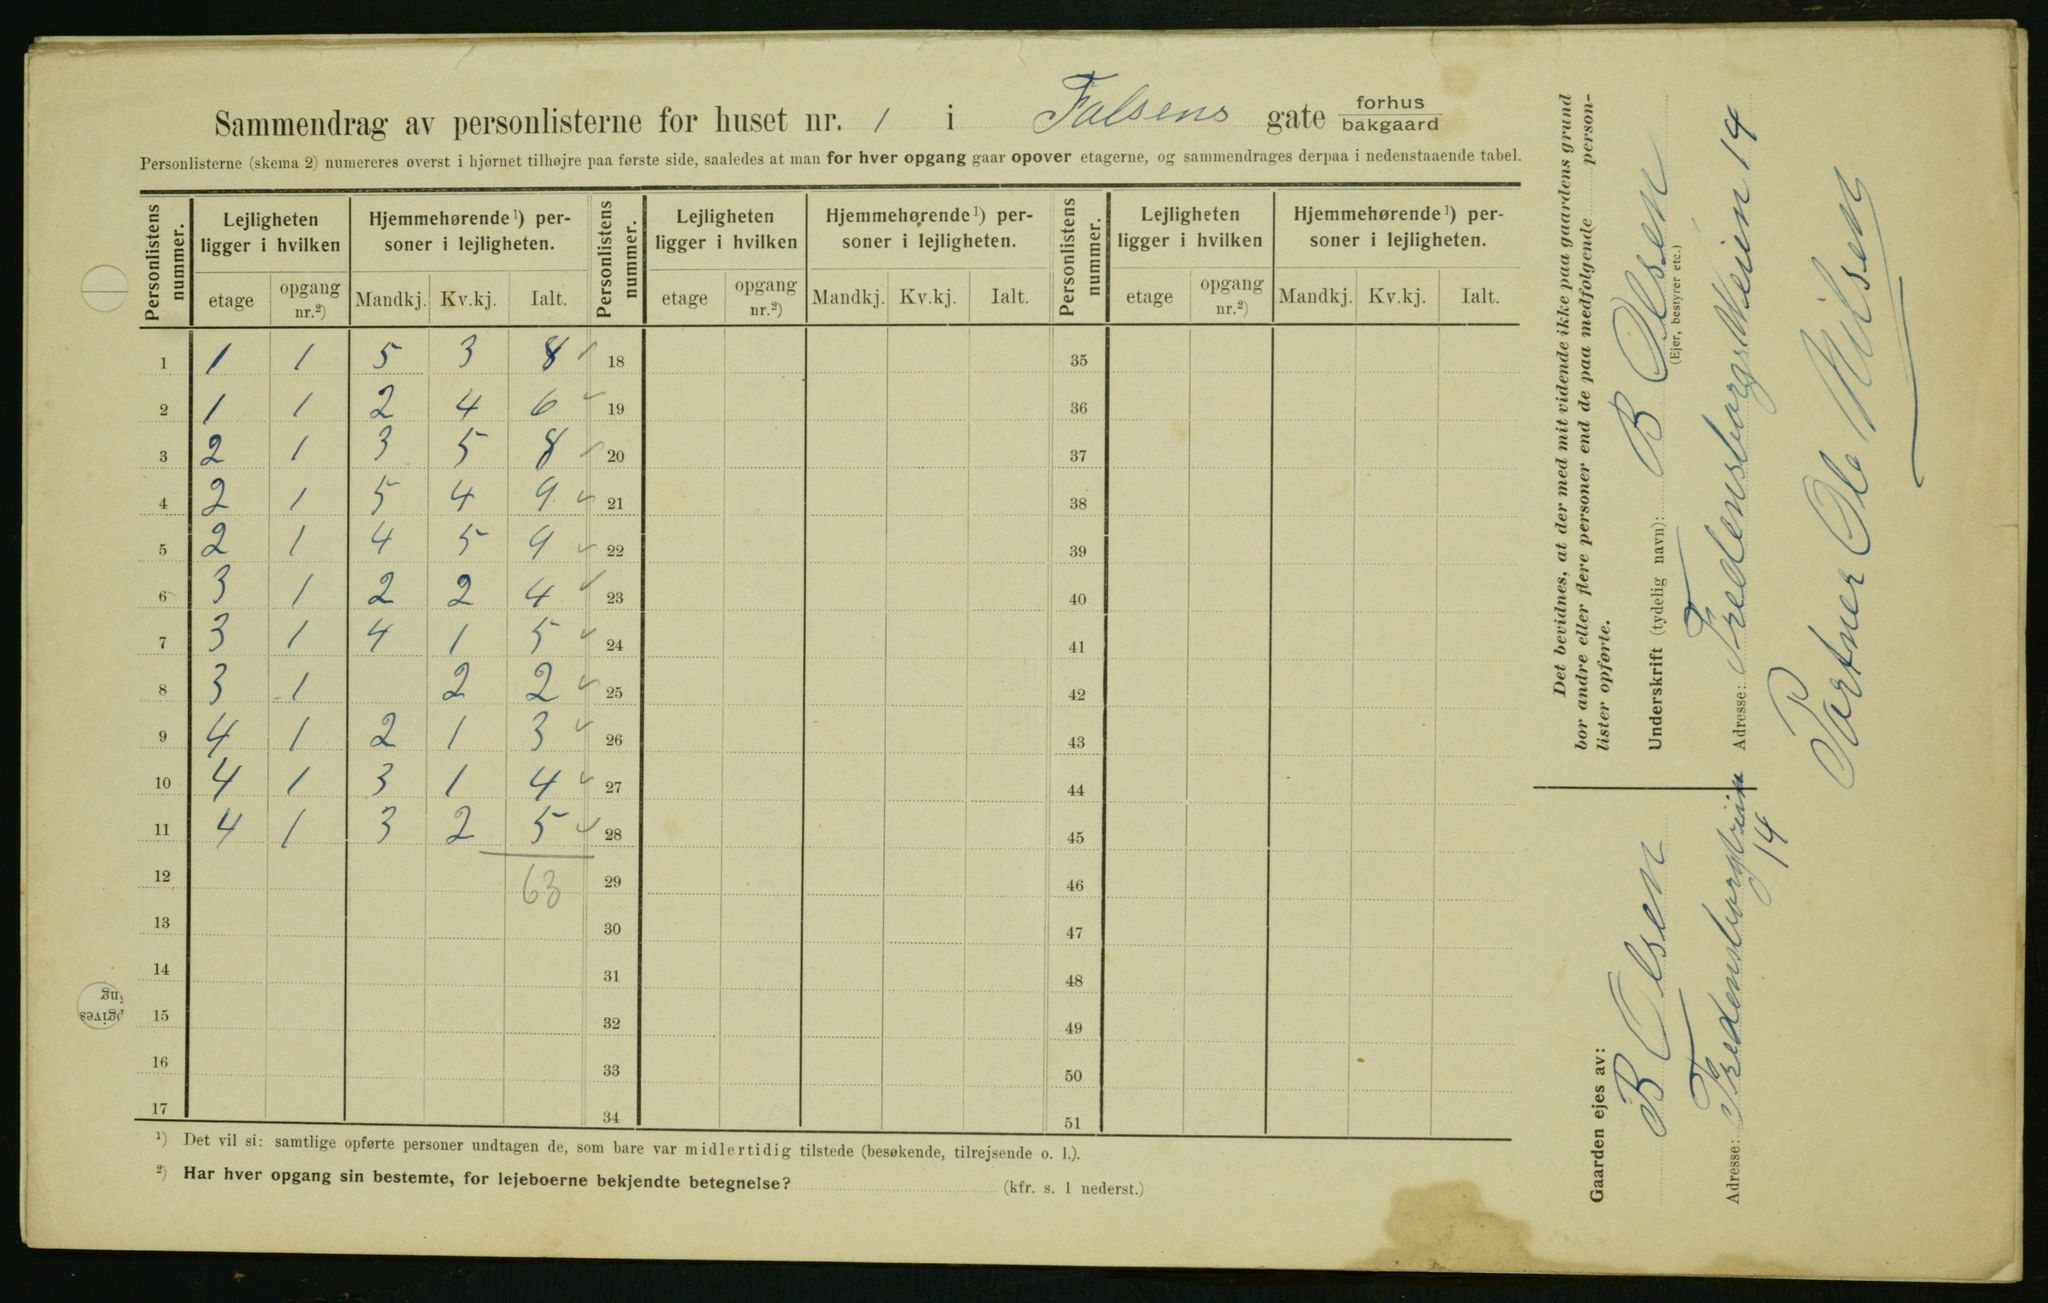 Sammendrag av personlisterne for huset nr. 1 i Falsens gate forhus bakgaard
Personlisterne (skema 2) numereres øverst i hjørnet tilhøjre paa første side, saaledes at man for hver opgang gaar opover etagerne, og sammendrages derpaa i nedenstaaende tabel.
Personlistens nummer. Lejligheten ligger i hvilken Hjemmehørende ¹) personer i lejligheten. Personlistens nummer. Lejligheten ligger i hvilken Hjemmehørende ¹) personer i lejligheten. Personlistens nummer. Lejligheten ligger i hvilken Hjemmehørende ¹) personer i lejligheten.
etage opgang nr.²) Mandkj. Kv.kj. Ialt. etage opgang nr.²) Mandkj. Kv.kj. Ialt. etage opgang nr.²) Mandkj. Kv.kj. Ialt.
1 1 1 5 3 8 ✓ 18 35
2 1 1 2 4 6 ✓ 19 36
3 2 1 3 5 8 ✓ 20 37
4 2 1 5 4 9 ✓ 21 38
5 2 1 4 5 9 ✓ 22 39
6 3 1 2 2 4 ✓ 23 40
7 3 1 4 1 5 ✓ 24 41
8 3 1 2 2 ✓ 25 42
9 4 1 2 1 3 ✓ 26 43
10 4 1 3 1 4 ✓ 27 44
11 4 1 3 2 5 ✓ 28 45
12 63 29 46
13 30 47
14 31 48
15 32 49
16 33 50
17 34 51
¹) Det vil si: samtlige opførte personer undtagen de, som bare var midlertidig tilstede (besøkende, tilrejsende o. l.).
²) Har hver opgang sin bestemte, for lejeboerne bekjendte betegnelse? (kfr. s. 1 nederst.)
Det bevidnes, at der med mit vidende ikke paa gaardens grund
bor andre eller flere personer end de paa medfølgende person-
lister opførte.
Underskrift (tydelig navn): B Olsen
(Ejer, bestyrer etc.)
Adresse: Fredensborgs Veien 14
Portner Ole Nilsen
Gaarden ejes av:
B Olsen
Adresse: Fredensborgveien
14